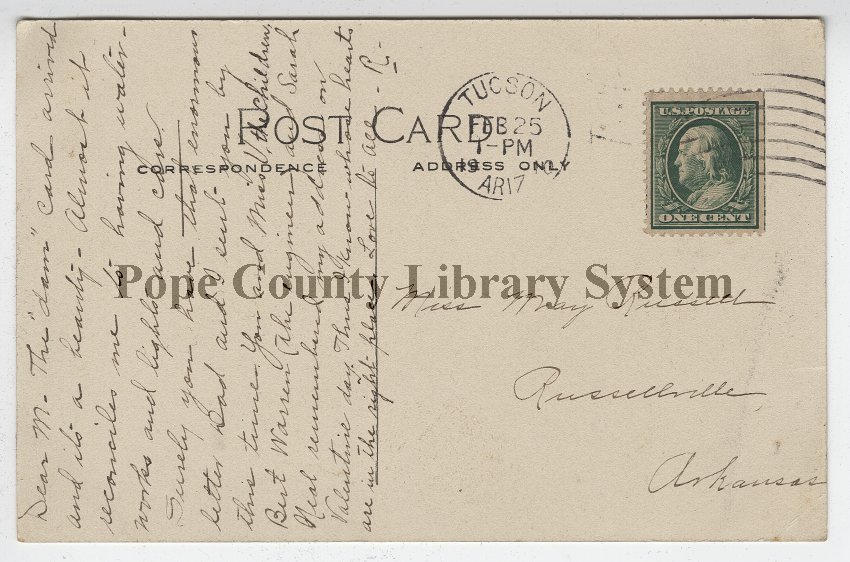 POST CARD
CORRESPONDENCE
ADDRESS ONLY
TUCSON
FEB 25
1-PM
19
ARI7
U.S. POSTAGE
ONE CENT
Pope County Library System
Miss May Russell
Russellville
Arkansas
Dear M- The "dam" card arrived
and it's a beauty- Almost it
reconciles me to having water-
works and lights and cars.
Surely you have that enormous
letter Dad and I sent you by
this time. You and Miss I, the children,
Bert Warren (the engineer) and Sarah
Neal remembered my address on
Valentine day. Thus I know whose hearts
are in the right place. Love to all - R-